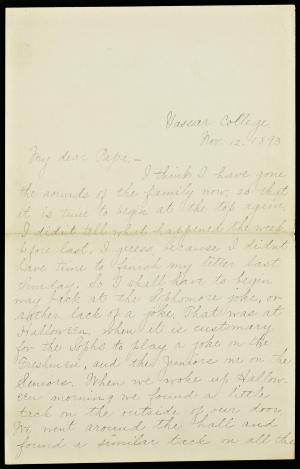 Vassar College,
Nov. 12. 1893
My dear Papa,-
I think I have gone
the rounds of the family now, so that
it is time to begin at the top again.
I didn't tell what happened the week
before last, I guess, because I didn't
have time to finish my letter last
Sunday. So I shall have to begin
way back at the Sophomore joke, or
rather lack of a joke. That was at
Halloween, when it is customary
for the Sophs to play a joke on the
Freshmen, and the Juniors one on the
Seniors. When we woke up Hallow-
een morning we found a little
tack on the outside of our door.
We went around the hall and
found a similar tack on all the